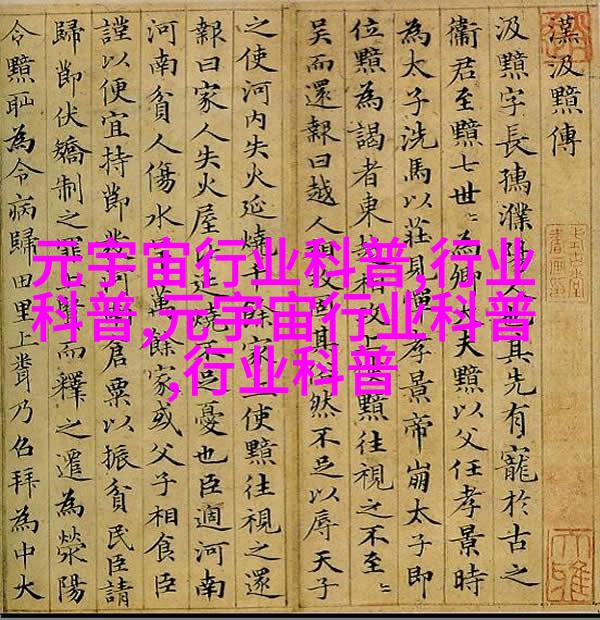 漢汲黯傳
汲黯字長孺濮陽人也其先有寵於古之
衞君至黯七世〻為卿大夫黯以父任孝景時
為太子洗馬以莊見憚孝景帝崩太子即
位黯為謁者東越相攻上使黯往視之不至〻
吳而還報曰越人相攻固其俗然不足以辱天子
之使河內失火延燒千餘家上使黯往視之還
報曰家人失火屋比延燒不足憂也臣適河南
河南貧人傷水旱萬餘家或父子相食臣
謹以便宜持節發河南倉粟以振貧民臣請
歸節伏矯制之罪上賢而釋之遷為滎陽
令黯恥為令病歸田里上聞乃召拜為中大
元宇宙行业科普,行业
科普,元宇宙行业科普
,行业科普